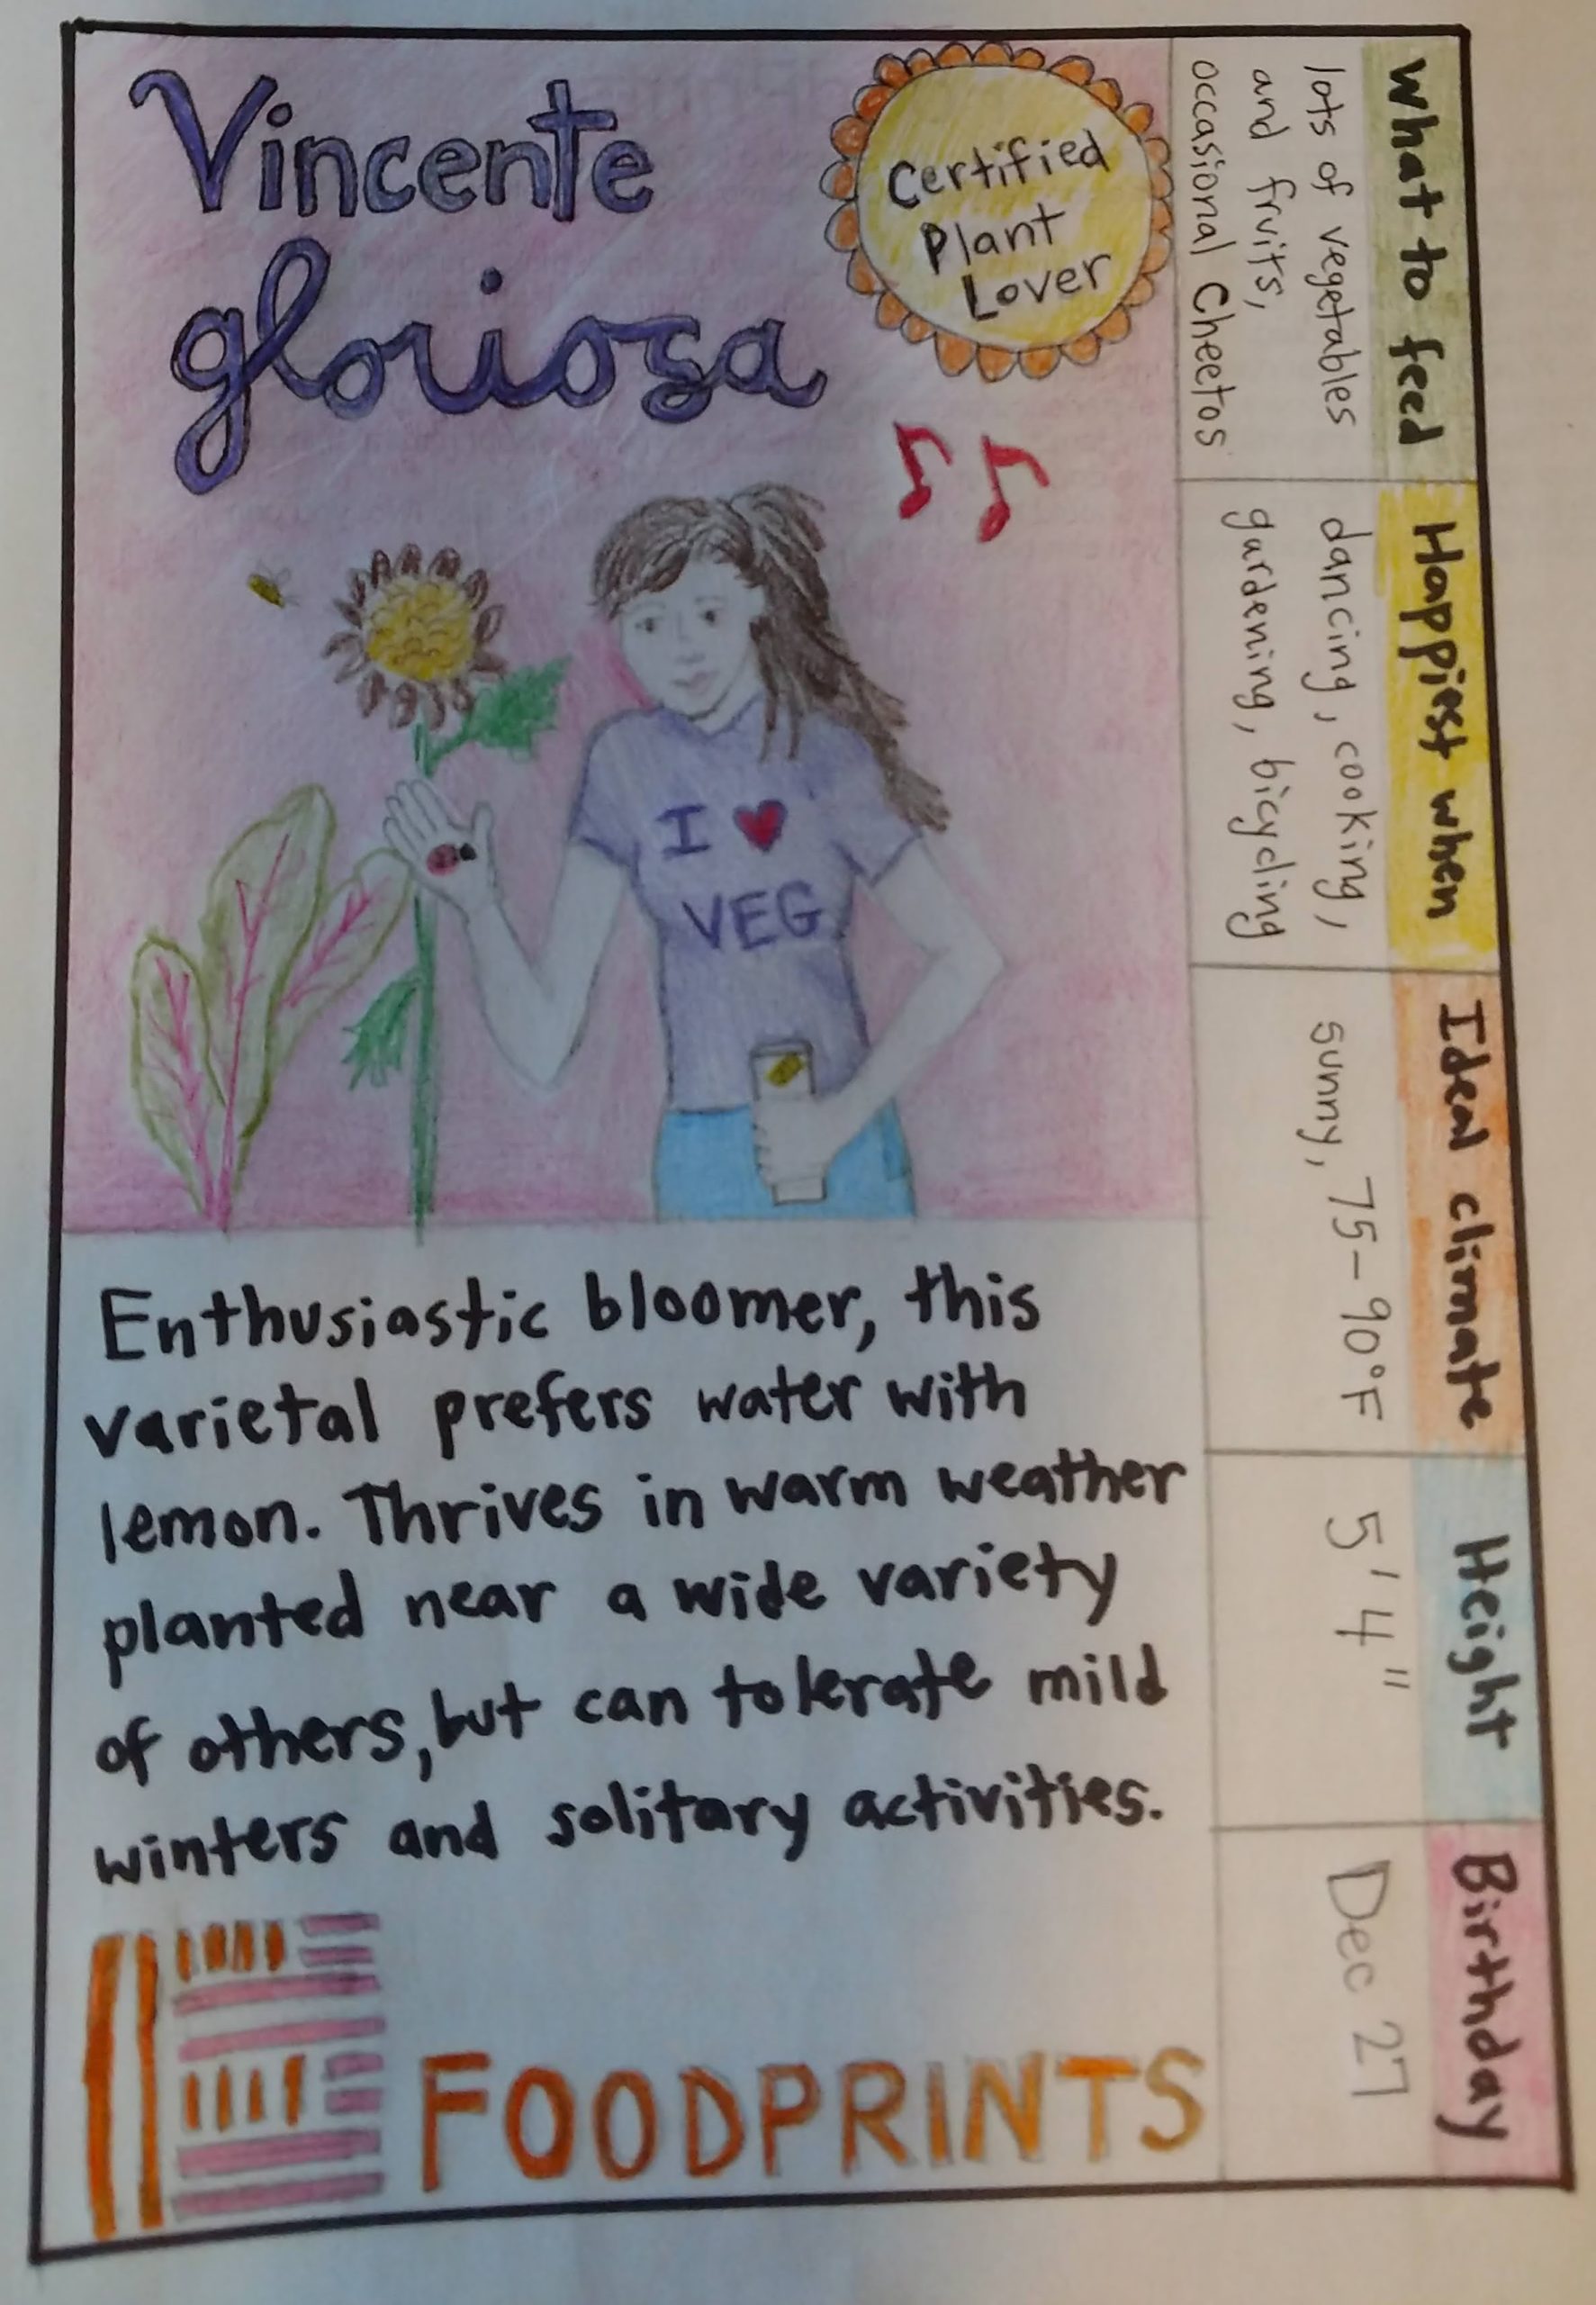 Vincente
gloriosa
Certified
Plant
Lover
I ♥
VEG
Enthusiastic bloomer, this
varietal prefers water with
lemon. Thrives in warm weather
planted near a wide variety
of others, but can tolerate mild
winters and solitary activities.
FOODPRINTS
What to feed
lots of vegetables
and fruits,
occasional Cheetos
Happiest when
dancing, cooking,
gardening, bicycling
Ideal climate
sunny, 75-90°F
Height
5'4"
Birthday
Dec 27